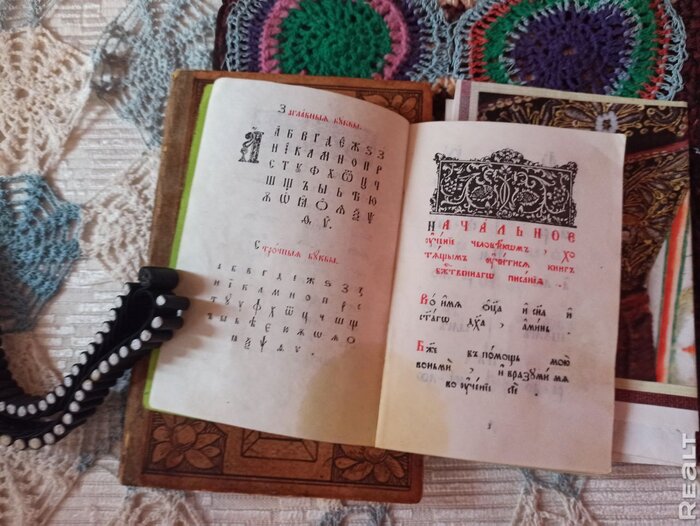 Загла́вныѧ бꙋ́квы.
А҆ А҆ Б В Г Д Е҆ Ж Ѕ З
И І К Л М Н О П Р
С Т У Ф Х Ѿ Ц Ч
Ш Щ Ъ Ы Ь Ѣ Ю
Ꙗ Ѡ Ѽ О Ѧ Ѯ Ѱ
Ѳ. Ѵ.
Стро́чныѧ бꙋ́квы.
а б в г д е ж ѕ з
и і к л м н о п р с
т у ꙋ ф х ѿ ц ч ш щ
ѯ ѱ ѳ ѵ .
НАЧАЛЬНОЕ
ᲂу҆че́нїе человѣ́кѡмъ, хо
тѧ́щымъ ᲂу҆чи́тисѧ кни́гъ
бж҃е́ственнагѡ писа́нїѧ
Во и҆́мѧ ѻ҆ц҃а̀ и҆ сн҃а и҆
ст҃а́гѡ дх҃а, а҆ми́нь.
Бж҃е въ по́мощь мою̀
вонмѝ, и҆ вразꙋмѝ мѧ̀
во ᲂу҆че́нїе сїѐ
Realt